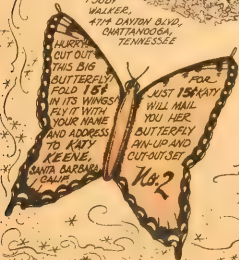 WALKER,
4714 DAYTON BLVD,
CHATTANOOGA,
TENNESSEE
HURRY!
CUT OUT
THIS BIG
BUTTERFLY!
FOLD 15¢
IN ITS WINGS!
FLY IT WITH
YOUR NAME
AND ADDRESS
TO KATY
KEENE,
SANTA BARBARA
CALIF.
FOR
JUST 15¢ KATY
WILL MAIL
YOU HER
BUTTERFLY
PIN-UP AND
CUT-OUT SET
No. 2